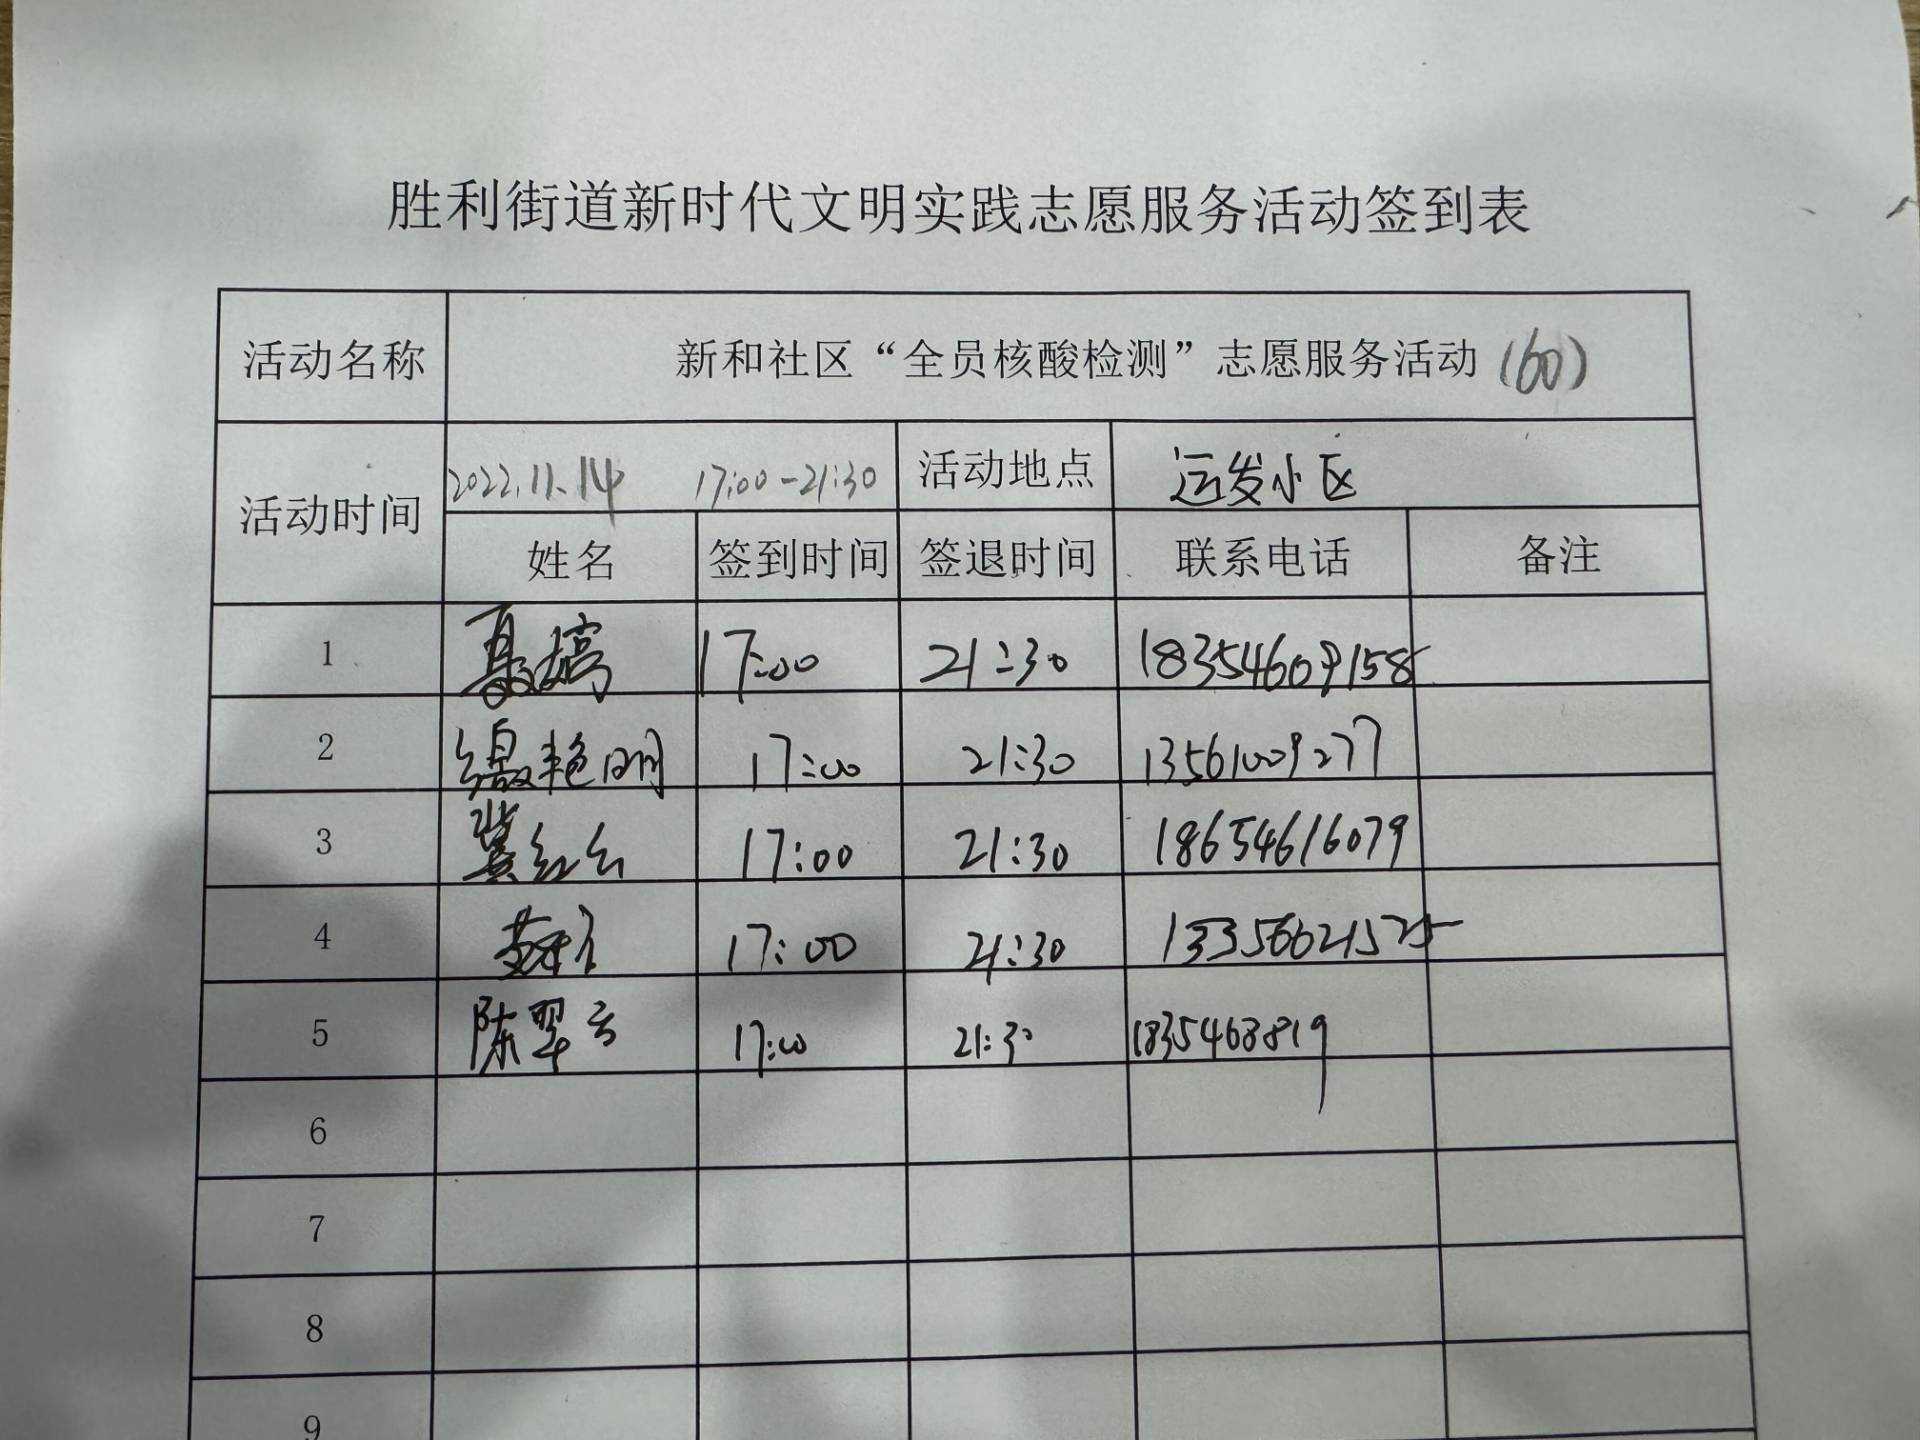 胜利街道新时代文明实践志愿服务活动签到表
活动名称 新和社区“全员核酸检测”志愿服务活动 (60)
活动时间 2022.11.14 17:00-21:30 活动地点 运发小区
姓名 签到时间 签退时间 联系电话 备注
1 17:00 21:30 18354609158
2 缴艳明 17:00 21:30 13561009277
3 冀红云 17:00 21:30 18654616079
4 17:00 21:30 13356621525
5 陈翠云 17:00 21:30 1835468819
6
7
8
9